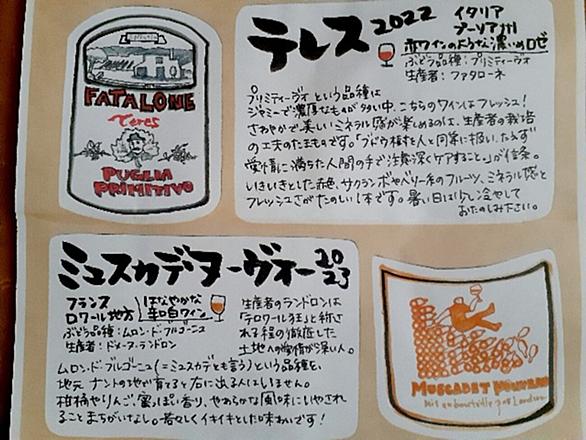 FATALONE
Teres
PUGLIA
PRIMITIVO
テレス 2022
イタリア
プーリア州
赤ワインのような濃いめロゼ
ぶどう品種：プリミティーヴォ
生産者：ファタローネ
プリミティーヴォという品種は
ジャミーで濃厚なものが多い中、こちらのワインはフレッシュ！
さわやかで美しいミネラル感が楽しめるのは、生産者の栽培
の工夫のたまものです。「ブドウ樹を人と同等に扱い、たえず
愛情に満ちた人間の手で注意深くケアすること」が信条。
いきいきとした赤色、サクランボやベリー系のフルーツ、ミネラル感と
フレッシュさがたのしい1本です。暑い日は少し冷やして
おたのしみ下さい。
ミュスカデヌーヴォー2023
フランス
ロワール地方
はなやかな
辛口白ワイン
ぶどう品種：ムロン・ド・ブルゴーニュ
生産者：ドメーヌ・ランドロン
生産者のランドロンは
「テロワール狂」と称さ
れる程の徹底した
土地への愛情が深い人。
ムロン・ド・ブルゴーニュ(=ミュスカデとも言う)という品種を、
地元ナントの地で育てる
右に出る人はいません。
柑橘やりんご、蜜っぽい香り、やわらかな風味にいやされ
ることまちがいなし。若々しくイキイキとした味わいです！
MUSCADET NOUVEAU
mis en bouteille par Landron